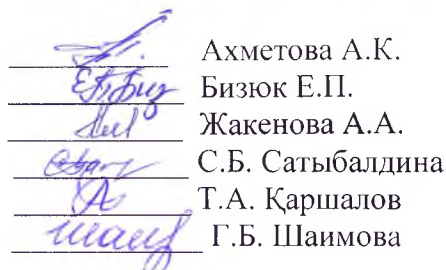 Ахметова А.К.
Бизюк Е.П.
Жакенова А.А.
С.Б. Сатыбалдина
Т.А. Қаршалов
Г.Б. Шаимова